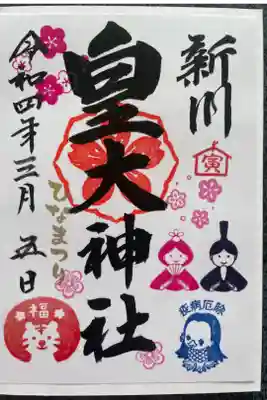 新川
寅
皇大神社
ひなまつり
令和四年三月五日
福
疫病厄除